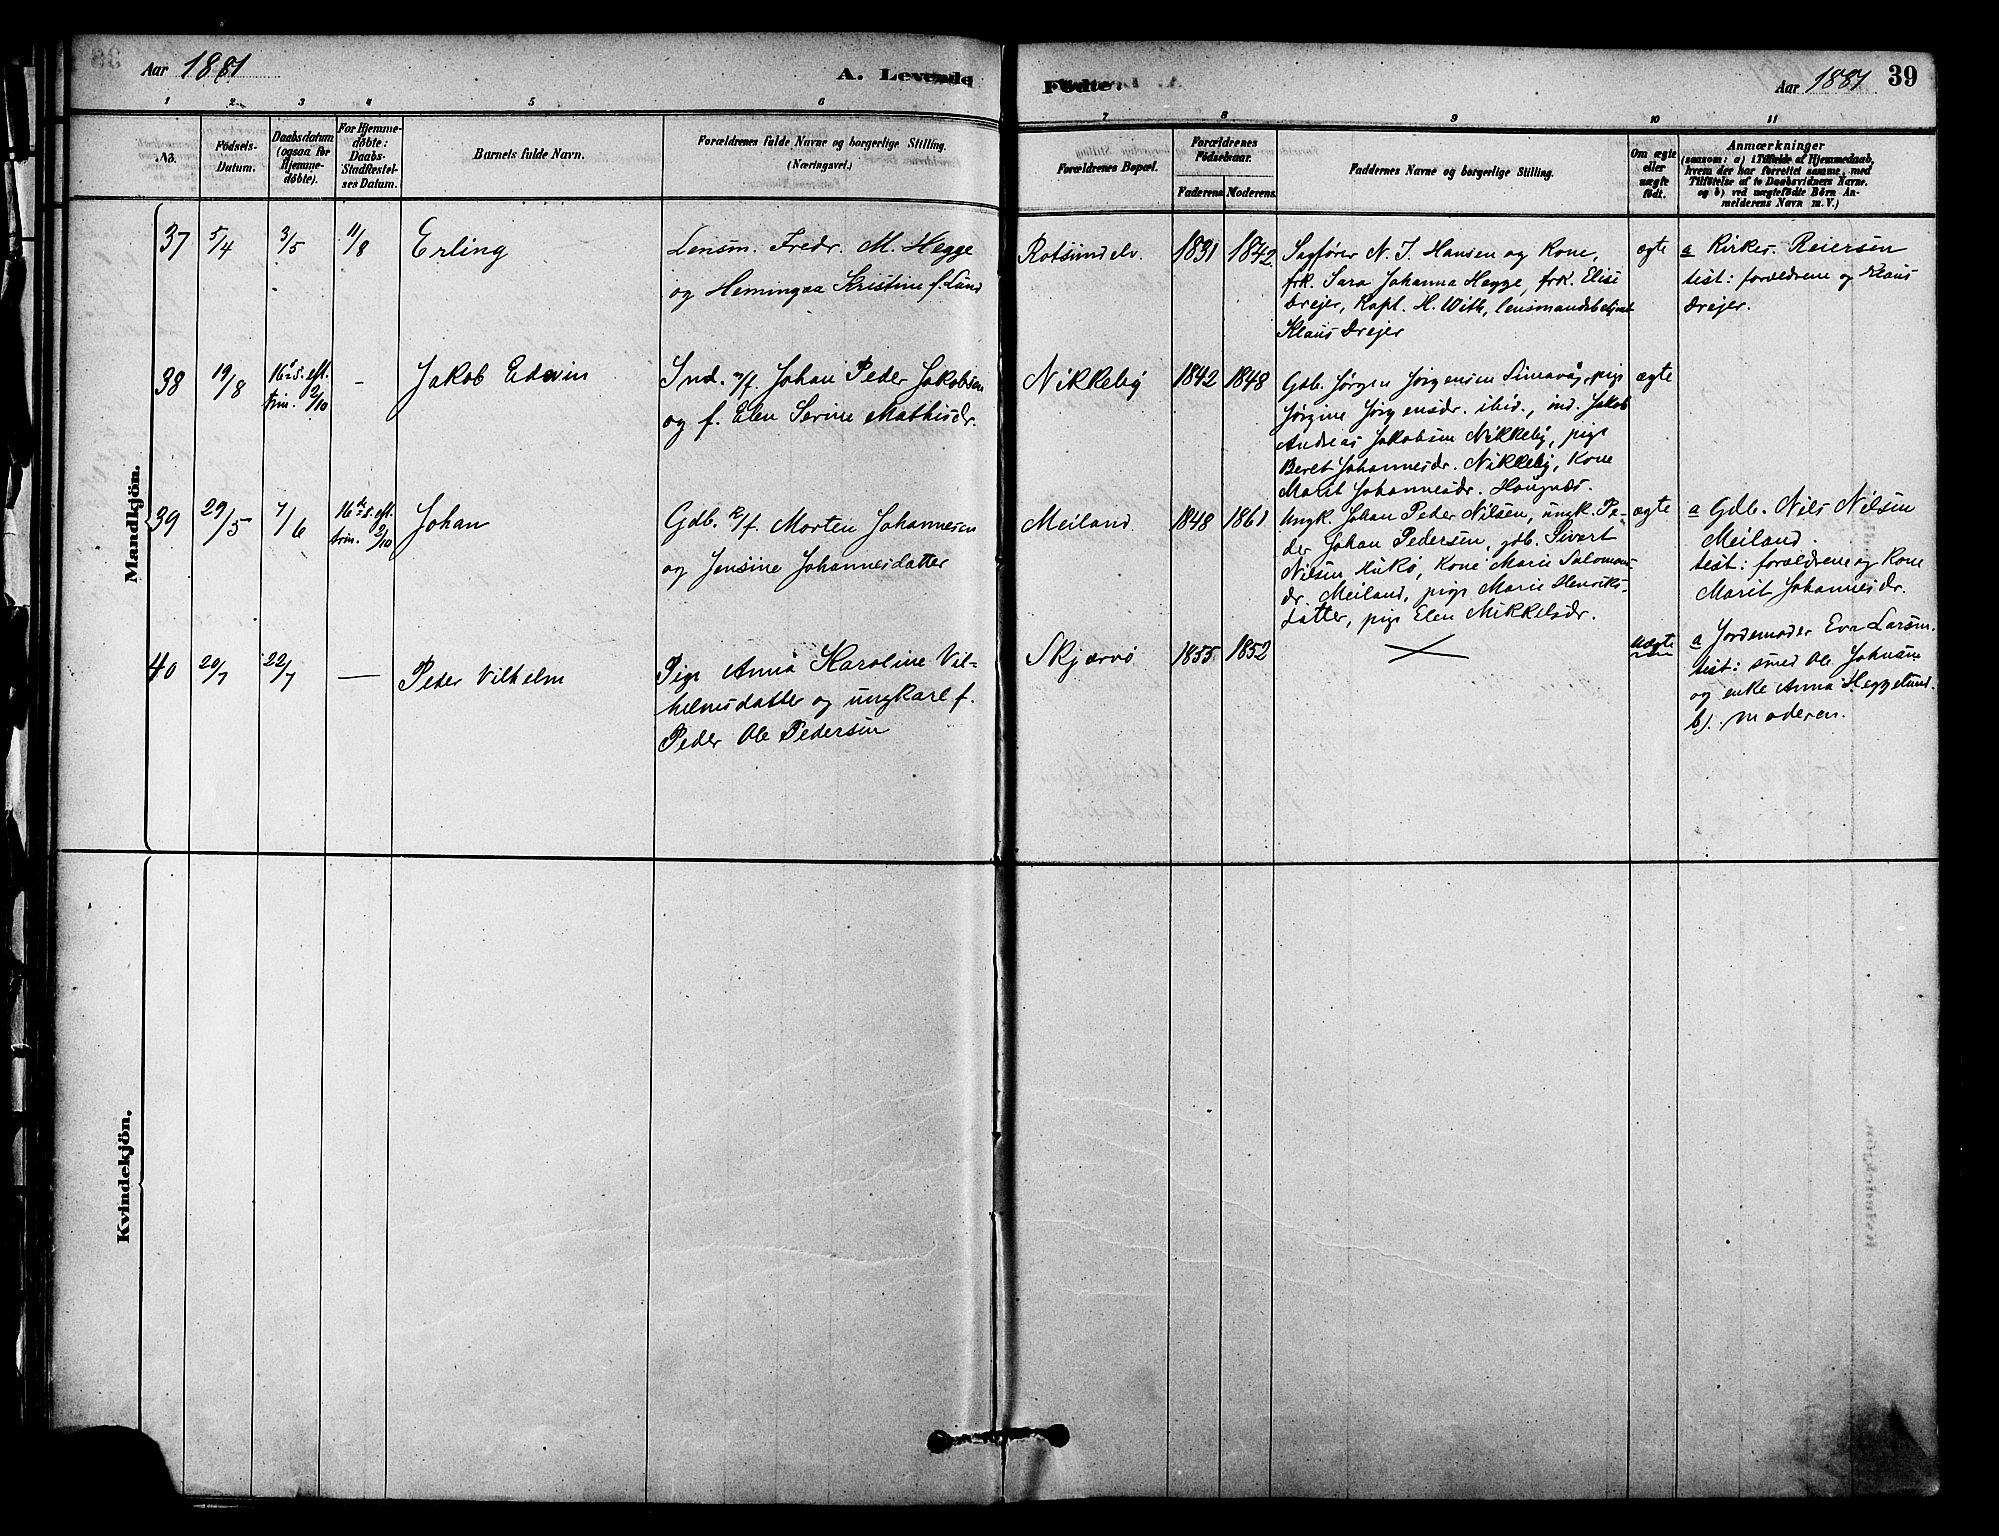 Aar 1881
A. Levende
Fødte.
Aar 1881
39
1 2 3 4 5 6 7 8 9 10 11
No.
Fødsels-
Datum.
Daabsdatum
(ogsaa for
Hjemme-
døbte).
For Hjemme-
døbte:
Daabs-
Stadfæstel-
ses Datum.
Barnets fulde Navn.
Forældrenes fulde Navne og borgerlige Stilling.
(Næringsvei.)
Forældrenes Bopæl.
Forældrenes
Fødselsaar.
Faderens. Moderens.
Faddernes Navne og borgerlige Stilling.
Om ægte
eller
uægte
født.
Anmærkninger
(saasom: a) i Tilfælde af Hjemmedaab,
hvem der har forrettet samme, med
Tilføielse af to Daabsvidners Navne.
og b) ved uægtefødte Børn An-
melderens Navn m. V.)
Mandkjön.
37
5/4
3/5
11/8
Erling
Lensm. Fredr. M. Hegge
og Hemingaa Kristine f. Lund
Rotsundelv.
1831
1842
Sagfører N. J. Hansen og Kone,
frk. Sara Johanna Hegge, frk. Elise
Drejer, Kapl. H. With, lensmandsbetjent
Klaus Drejer
ægte
a Kirkes. Reiersen
test: forældrene og Klaus
Drejer.
38
19/8
16de s. eft.
trin. 2/10
–
Jakob Edvin
Ind. n/f. Johan Peder Jakobsen
og f. Elen Serine Mathisdr.
Nikkeby
1842
1848
Gdb. Jørgen Jørgensen Simavåg, pige
Jørgine Jørgensdr. ibid., ind. Jakob
Andreas Jakobsen Nikkeby, pige
Beret Johannesdr. Nikkeby, Kone
Marit Johannesdr. Haugnæs.
ægte
39
29/5
7/6
16de s. eft.
trin. 2/10
Johan
Gdb. k/f. Morten Johannesen
og Jensine Johannesdatter
Meiland.
1848
1861
Ungk. Johan Peder Nilsen, ungk. Pe-
der Johan Pedersen, gdb. Sivert
Nilsen Hukø, Kone Marie Salomons
dr. Meiland, pige Marie Henriks-
datter, pige Elen Mikkelsdr.
ægte
a Gdb. Nils Nilsen
Meiland.
test: forældrene og Kone
Marit Johannesdr.
40
20/7
22/7
—
Peder Vilhelm
Pige Anna Karoline Vil-
helmsdatter og ungkarl f.
Peder Ole Pedersen
Skjærvø
1855
1852
uægte
a Jordemoder Eva Larsen.
test: smed Ole Johnsen
og enke Anna Heggelund.
b). moderen.
Kvindekjön.